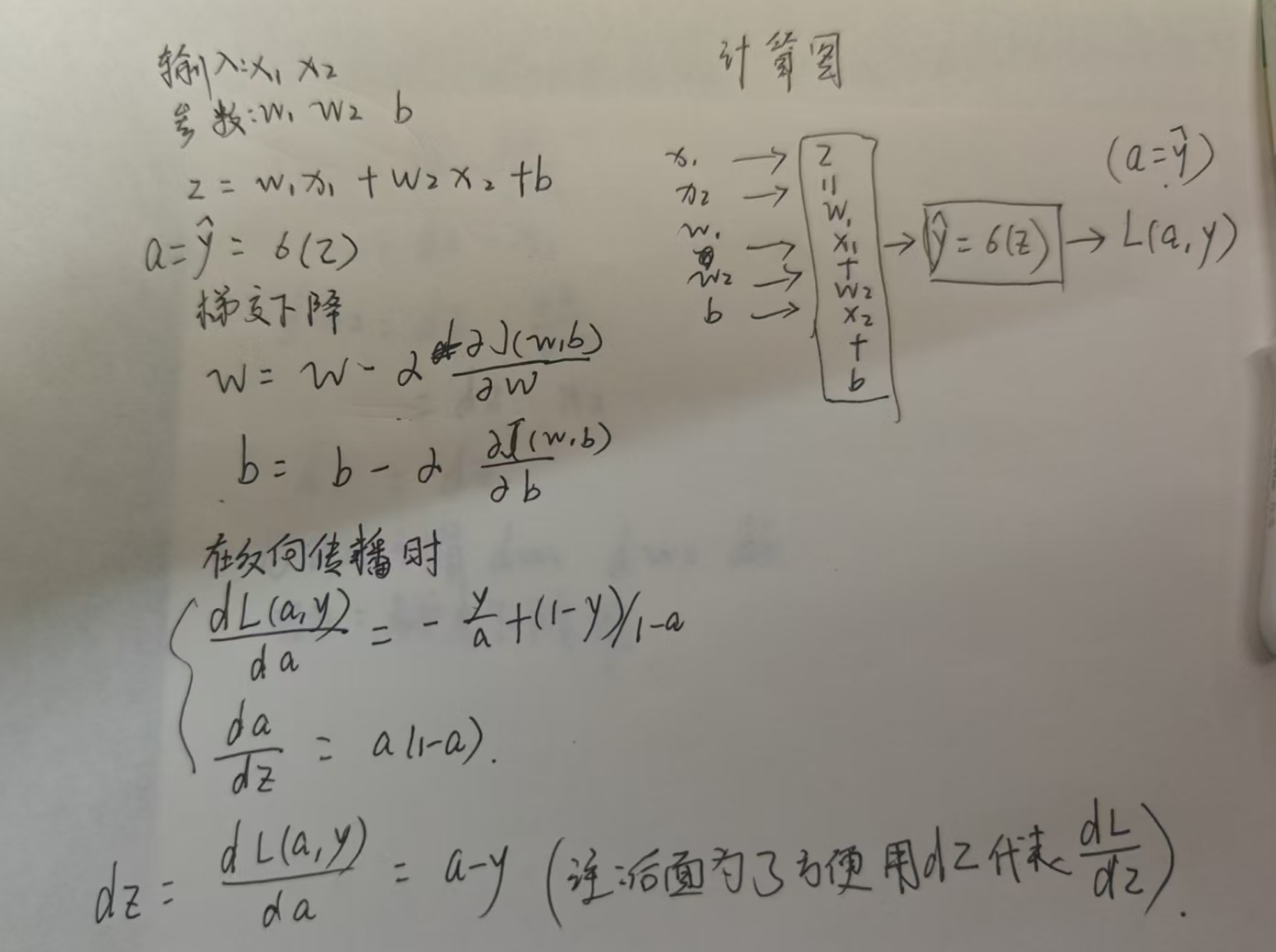 输入:x₁ x₂
参数:w₁ w₂ b
z = w₁x₁ + w₂x₂ + b
a = ŷ = 6(z)
梯度下降
w = w - α ∂J(w,b)/∂w
b = b - α ∂J(w,b)/∂b
在反向传播时
dL(a,y)/da = - y/a + (1-y)/1-a
da/dz = a(1-a).
dz = dL(a,y)/da = a-y (注:后面为了方便用dz代表 dL/dz).
计算图
x₁ →
x₂ →
w₁ →
w₂ →
b →
z
=
w₁
x₁
+
w₂
x₂
+
b
→ ŷ = 6(z) → L(a,y)
(a=ŷ)